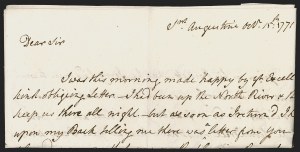 St. Augustine Octr. 12th. 1771
Dear Sir
I was this morning, made happy by yr. Excell
kind obliging Letter — I had been up the North River &
keep us there all night — but as soon as I return'd
upon my Back telling me there was letter from you